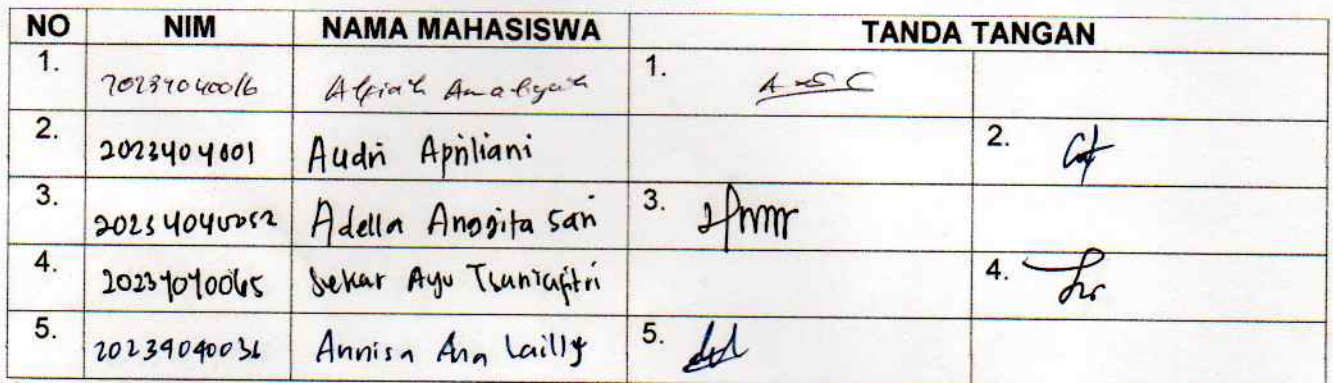 NO NIM NAMA MAHASISWA TANDA TANGAN
1. 20234040016 Alfiah Amaliyah 1.
2. 2023404001 Audri Apriliani 2.
3. 20234040052 Adella Anggita Sari 3.
4. 20234040065 Sekar Ayu Tsaniafitri 4.
5. 20234040036 Annisa Ana Lailly 5.